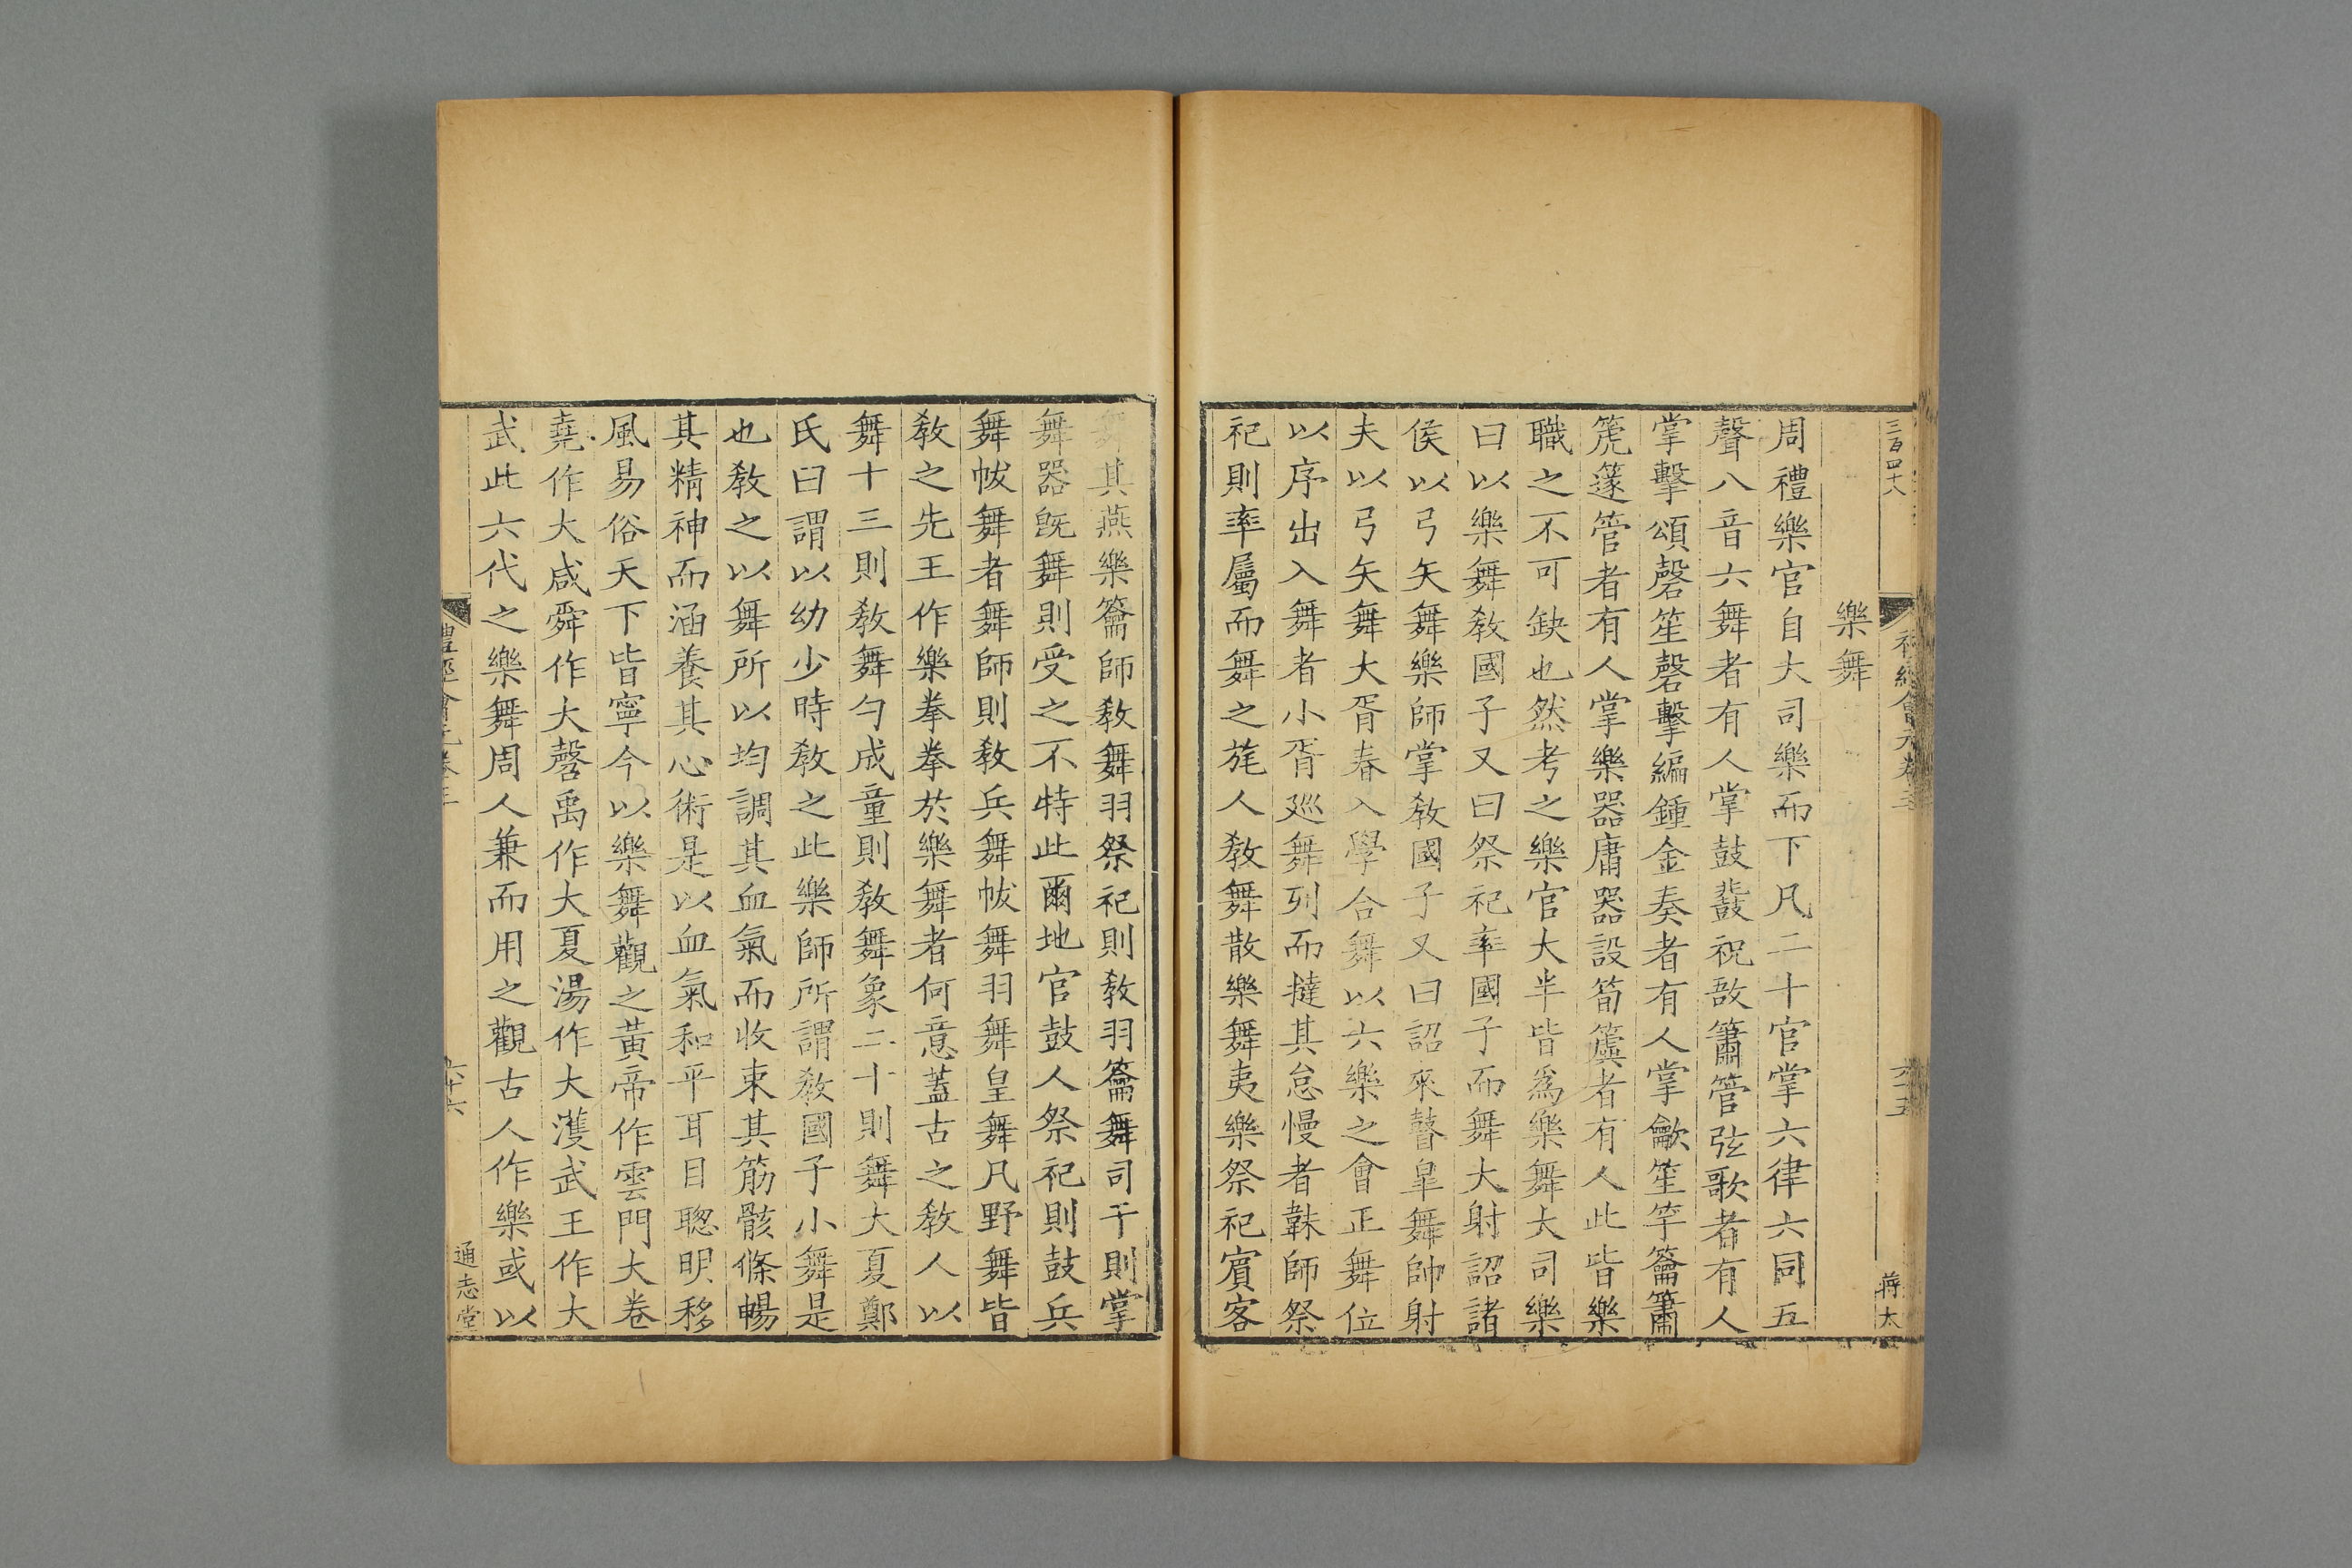 三百四十八
樂舞
周禮樂官自大司樂而下凡二十官掌六律六同五
聲八音六舞者有人掌鼓鼗柷敔簫管弦歌者有人
掌擊頌磬笙磬擊編鍾金奏者有人掌龡笙竽籥簫
篪篴管者有人掌樂器庸器設筍簴者有人此皆樂
職之不可缺也然考之樂官大半皆爲樂舞大司樂
曰以樂舞教國子又曰祭祀率國子而舞大射詔諸
侯以弓矢舞樂師掌教國子又曰詔來瞽皐舞帥射
夫以弓矢舞大胥春入學合舞以六樂之會正舞位
以序出入舞者小胥廵舞列而撻其怠慢者韎師祭
祀則率屬而舞之旄人教舞散樂舞夷樂祭祀賓客
舞其燕樂籥師教舞羽祭祀則教羽籥舞司干則掌
舞器旣舞則受之不特此爾地官鼓人祭祀則鼓兵
舞帗舞者舞師則教兵舞帗舞羽舞皇舞凡野舞皆
教之先王作樂拳拳於樂舞者何意蓋古之教人以
舞十三則教舞勺成童則教舞象二十則舞大夏鄭
氏曰謂以幼少時教之此樂師所謂教國子小舞是
也教之以舞所以均調其血氣而收束其筋骸條暢
其精神而涵養其心術是以血氣和平耳目聦明移
風易俗天下皆寧今以樂舞觀之黃帝作雲門大卷
堯作大咸舜作大磬禹作大夏湯作大濩武王作大
武此六代之樂舞周人兼而用之觀古人作樂或以
六十六
通志堂